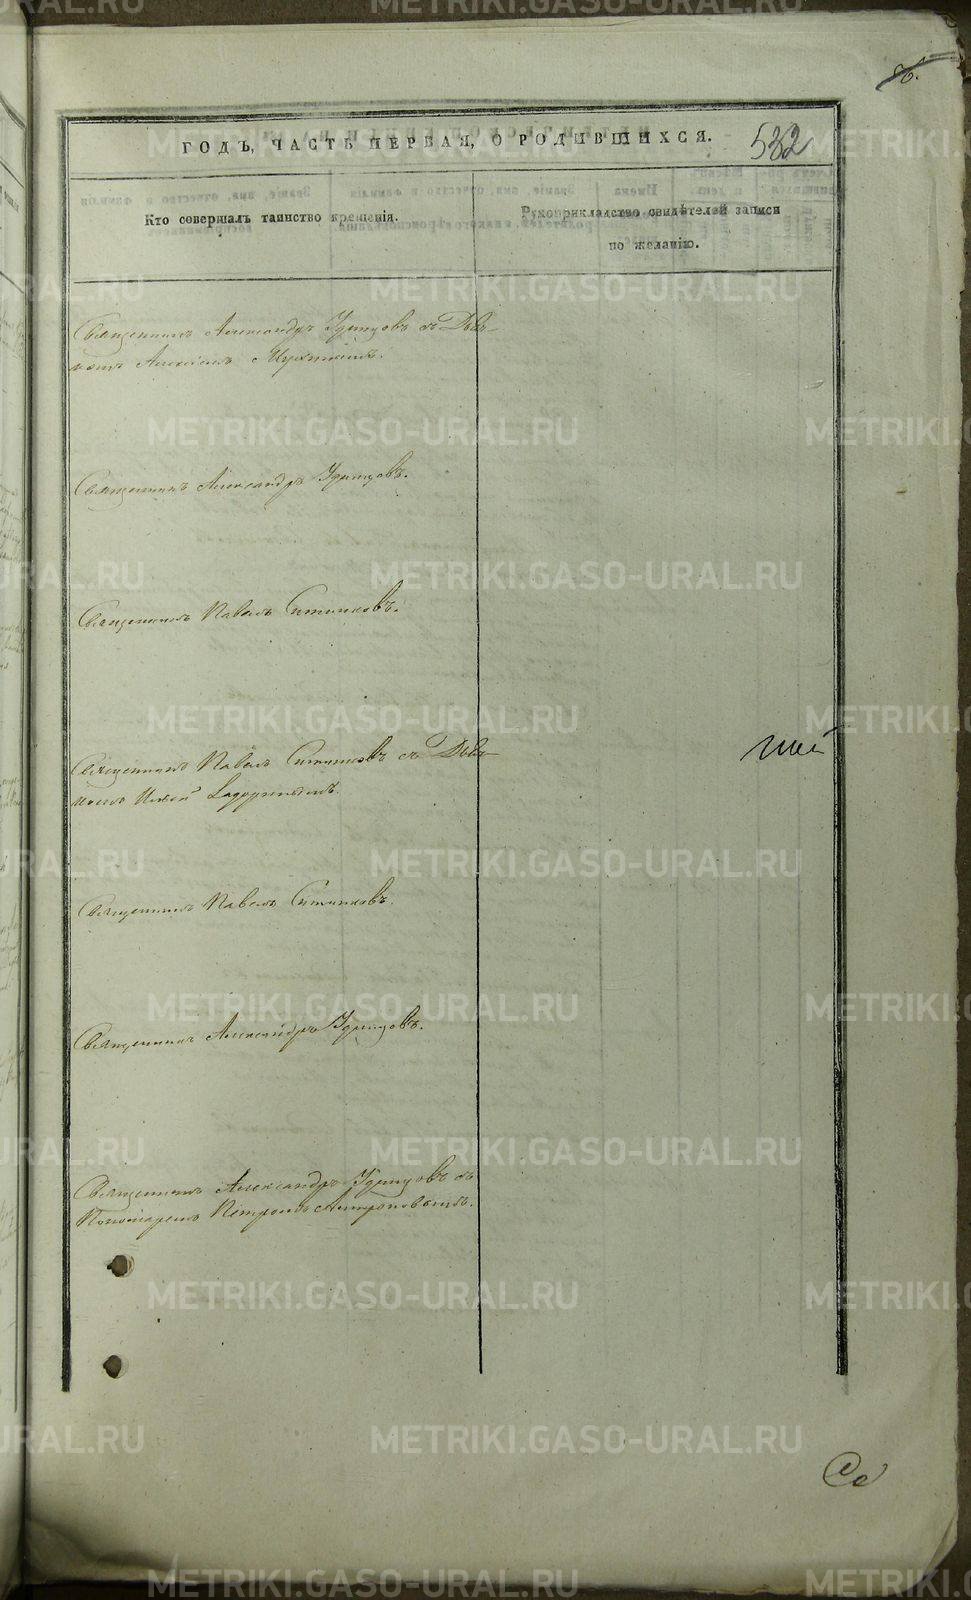 532
ГОДЪ, ЧАСТЬ ПЕРВАЯ, О РОДИВШИХСЯ.
Кто совершалъ таинство крещенія.
Рукоприкладство свидѣтелей записи
по желанію.
Священникъ Александръ Удинцовъ съ Дья-
кономъ Алексѣемъ
Священникъ Александръ Удинцовъ.
Священникъ Павелъ Ситниковъ.
Священникъ Павелъ Ситниковъ съ Дья-
Священникъ Павелъ Ситниковъ.
Священникъ Александръ Удинцовъ.
Священникъ Александръ Удинцовъ съ
Пономаремъ Петромъ Антроповымъ.
METRIKI.GASO-URAL.RU